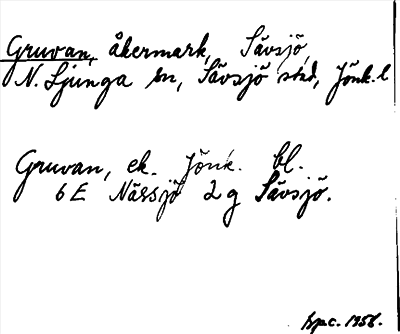 Gruvan, åkermark, Sävsjö,
N. Ljunga sn, Sävsjö stad, Jönk. l
Gruvan, ek. Jönk. bl.
6 E Nässjö 2 g Sävsjö.
1958.